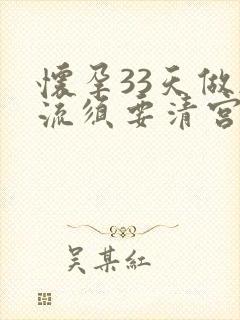 懷孕33天做
流須要清宮
吴某紅